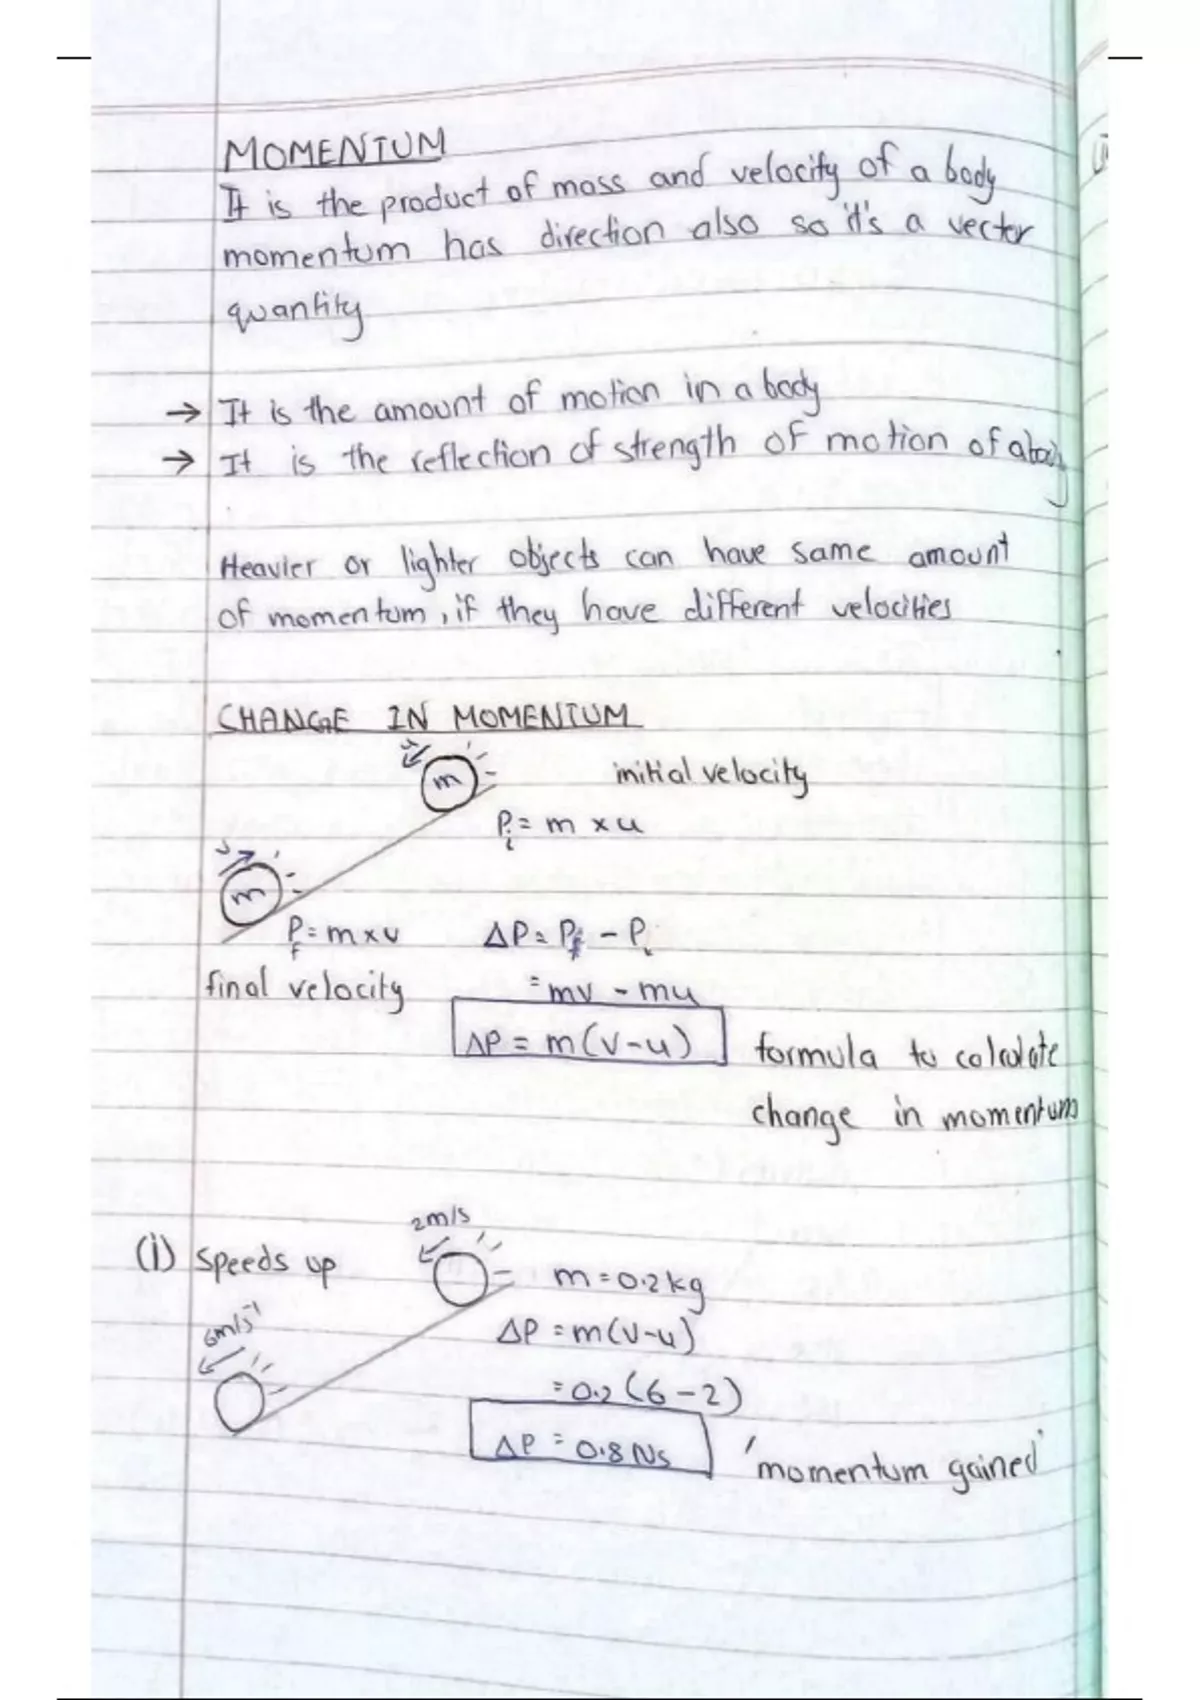 MOMENTUM
It is the product of mass and velocity of a body
momentum has direction also so it's a vector
quantity
→ It is the amount of motion in a body
→ It is the reflection of strength of motion of a body
Heavier or lighter objects can have same amount
of momentum, if they have different velocities
CHANGE IN MOMENTUM
m
initial velocity
Pi = m x u
m
Pf = m x v
ΔP = Pf - Pi
final velocity
= mv - mu
ΔP = m(v-u)
formula to calculate
change in momentum
2m/s
(i) speeds up
m = 0.2kg
6m/s⁻¹
ΔP = m(v-u)
= 0.2 (6-2)
ΔP = 0.8 Ns
'momentum gained'